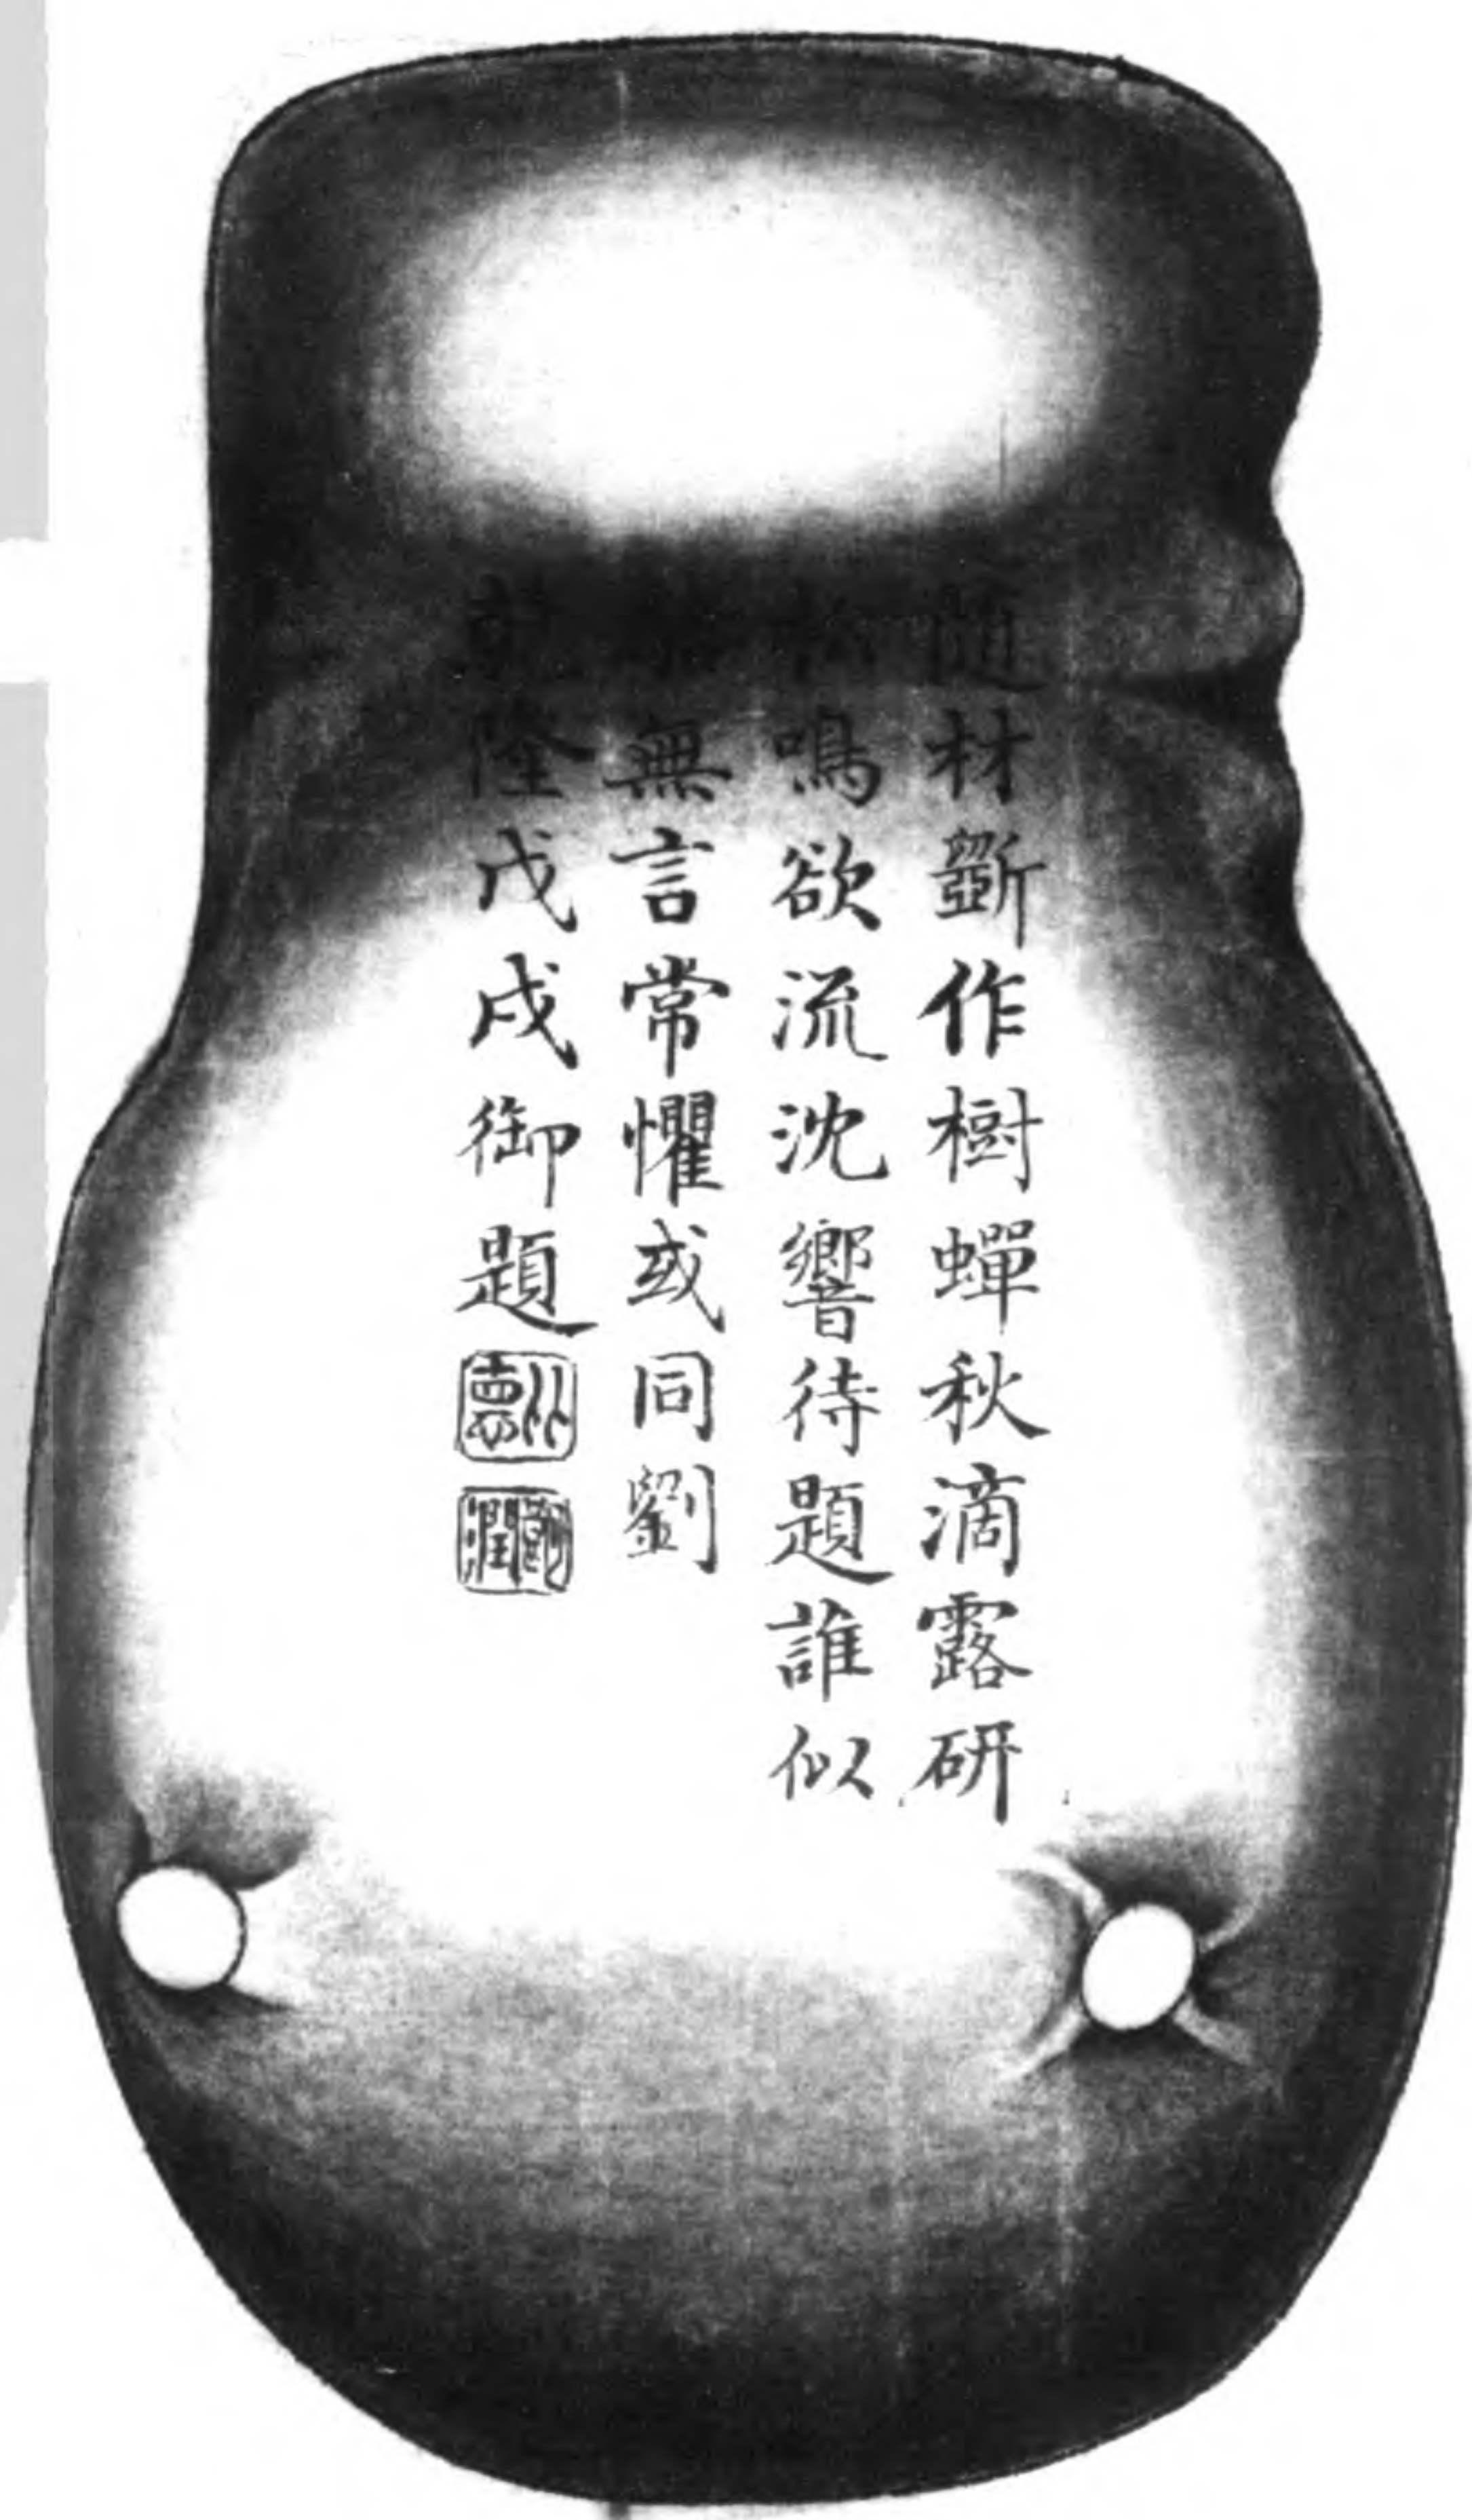 隨材斵作樹蟬秋滴露研
鳴欲流沈響待題誰似
無言常懼或同劉
乾隆戊戌御題
比德
朗潤